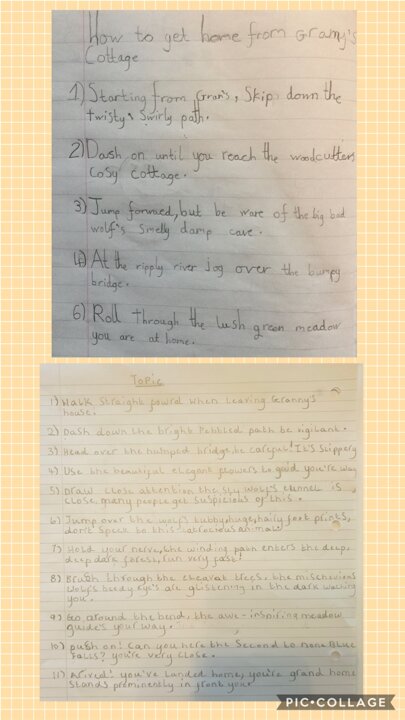 How to get home from Granny's
Cottage
1) Starting from Gran's, Skip down the
twisty, swirly path.
2) Dash on until you reach the woodcutters
cosy cottage.
3) Jump forward, but be ware of the big bad
wolf's smelly damp cave.
4) At the ripply river jog over the bumpy
bridge.
6) Roll through the lush green meadow
you are at home.
Topic
1) Walk straight when leaving Granny's
house.
2) Dash down the bright Pebbled path be vigilant.
3) Head over the humped bridge, be careful! It's Slippery
4) Use the beautiful elegant flowers to guid you're way
5) Draw close attention the sly wolf's tunnel is
close, many people get suspicious of this.
6) Jump over the wolf's tubby, huge, haily foot prints,
don't speck to this atrocious animal!
7) Hold your nerve, the winding path enters the deep,
deep dark forest, run very fast!
8) Brush through the trees, the mischevious
wolf's beedy eye's are glistening in the dark waching
you.
9) Go around the bend, the awe-inspiring meadow
guide's your way.
10) push on! Can you here the Second to none Blue
Falls? you're very close.
11) Arived! you've landed home, you're grand home
Stands prominently in front you!
PIC•COLLAGE